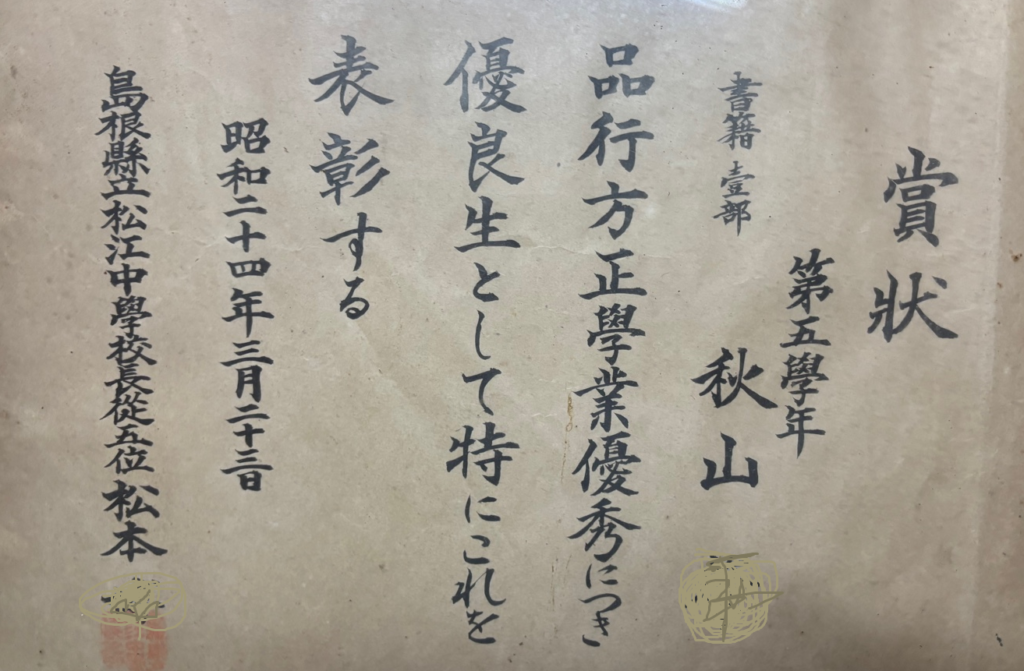 賞狀
第五學年
秋山
書籍壹部
品行方正學業優秀につき
優良生として特にこれを
表彰する
昭和二十四年三月二十三日
島根縣立松江中學校長從五位松本